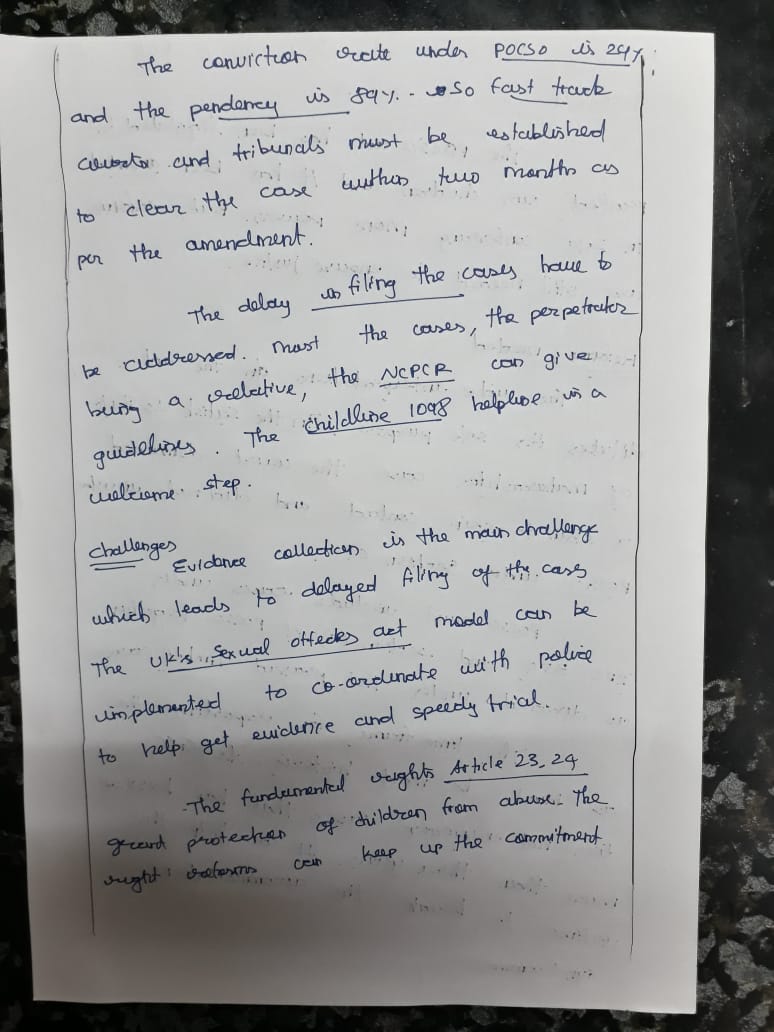 The conviction rate under POCSO is 24%
and the pendency is 89%. - So fast track
courts and tribunals must be established
to clear the case within two months as
per the amendment.
The delay in filing the cases have to
be addressed. Most the cases, the perpetrator
being a relative, the NCPCR can give
guidelines. The childline 1098 helpline is a
welcome step.
Challenges
Evidence collection is the main challenge
which leads to delayed filing of the cases
The UK's Sexual offeces act model can be
implemented to co-ordinate with police
to help get evidence and speedy trial.
The fundamental rights Article 23, 24
protection of children from abuse. The
right reforms can keep up the commitment